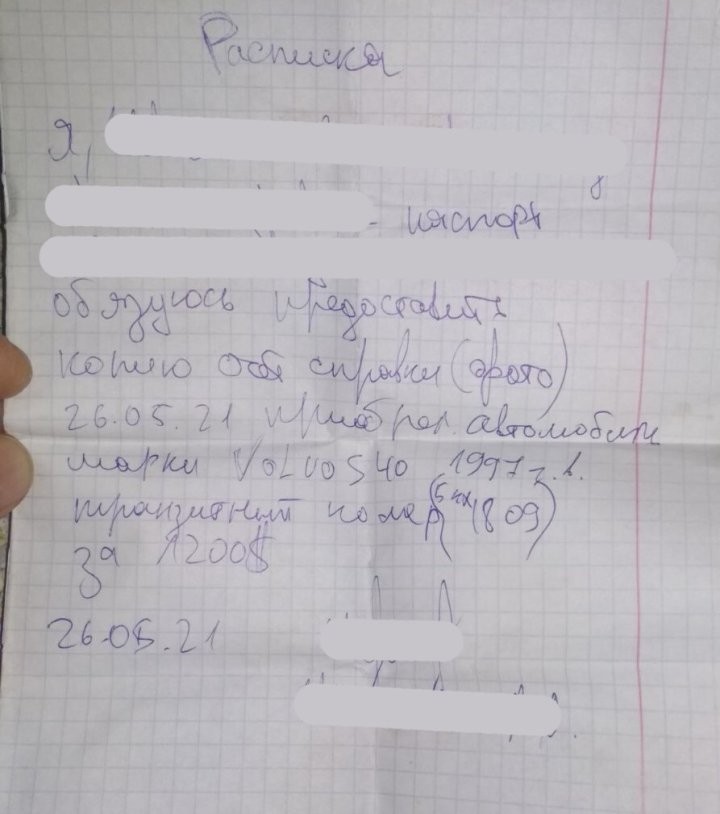 Расписка
Я,
- паспорт
обязуюсь предоставить
копию справки (фото)
26.05.21 приобрел автомобиль
марки VOLVO S40 1997 г.в.
транзитный номер 1809)
за 1200$
26.05.21